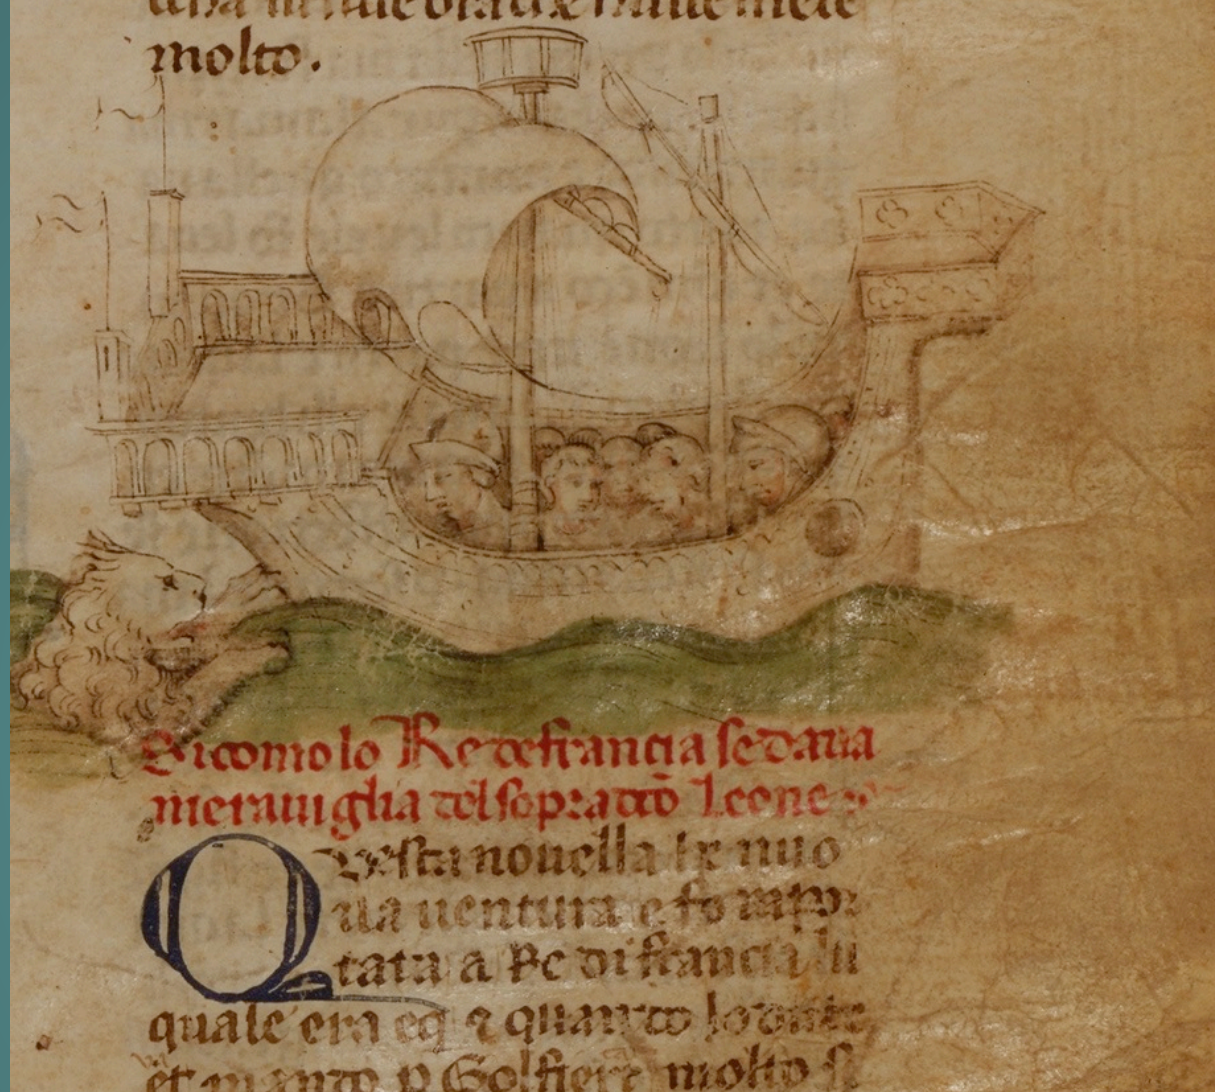 molto.
Sicomo lo Re de francia se daua
merauiglia del sopradcō Leone
Questa nouella he nuo
ua uentura e fo rappor
tata a Re di francia lu
quale era eq̄ ⁊ quanto lo
et p Golfiere molto si